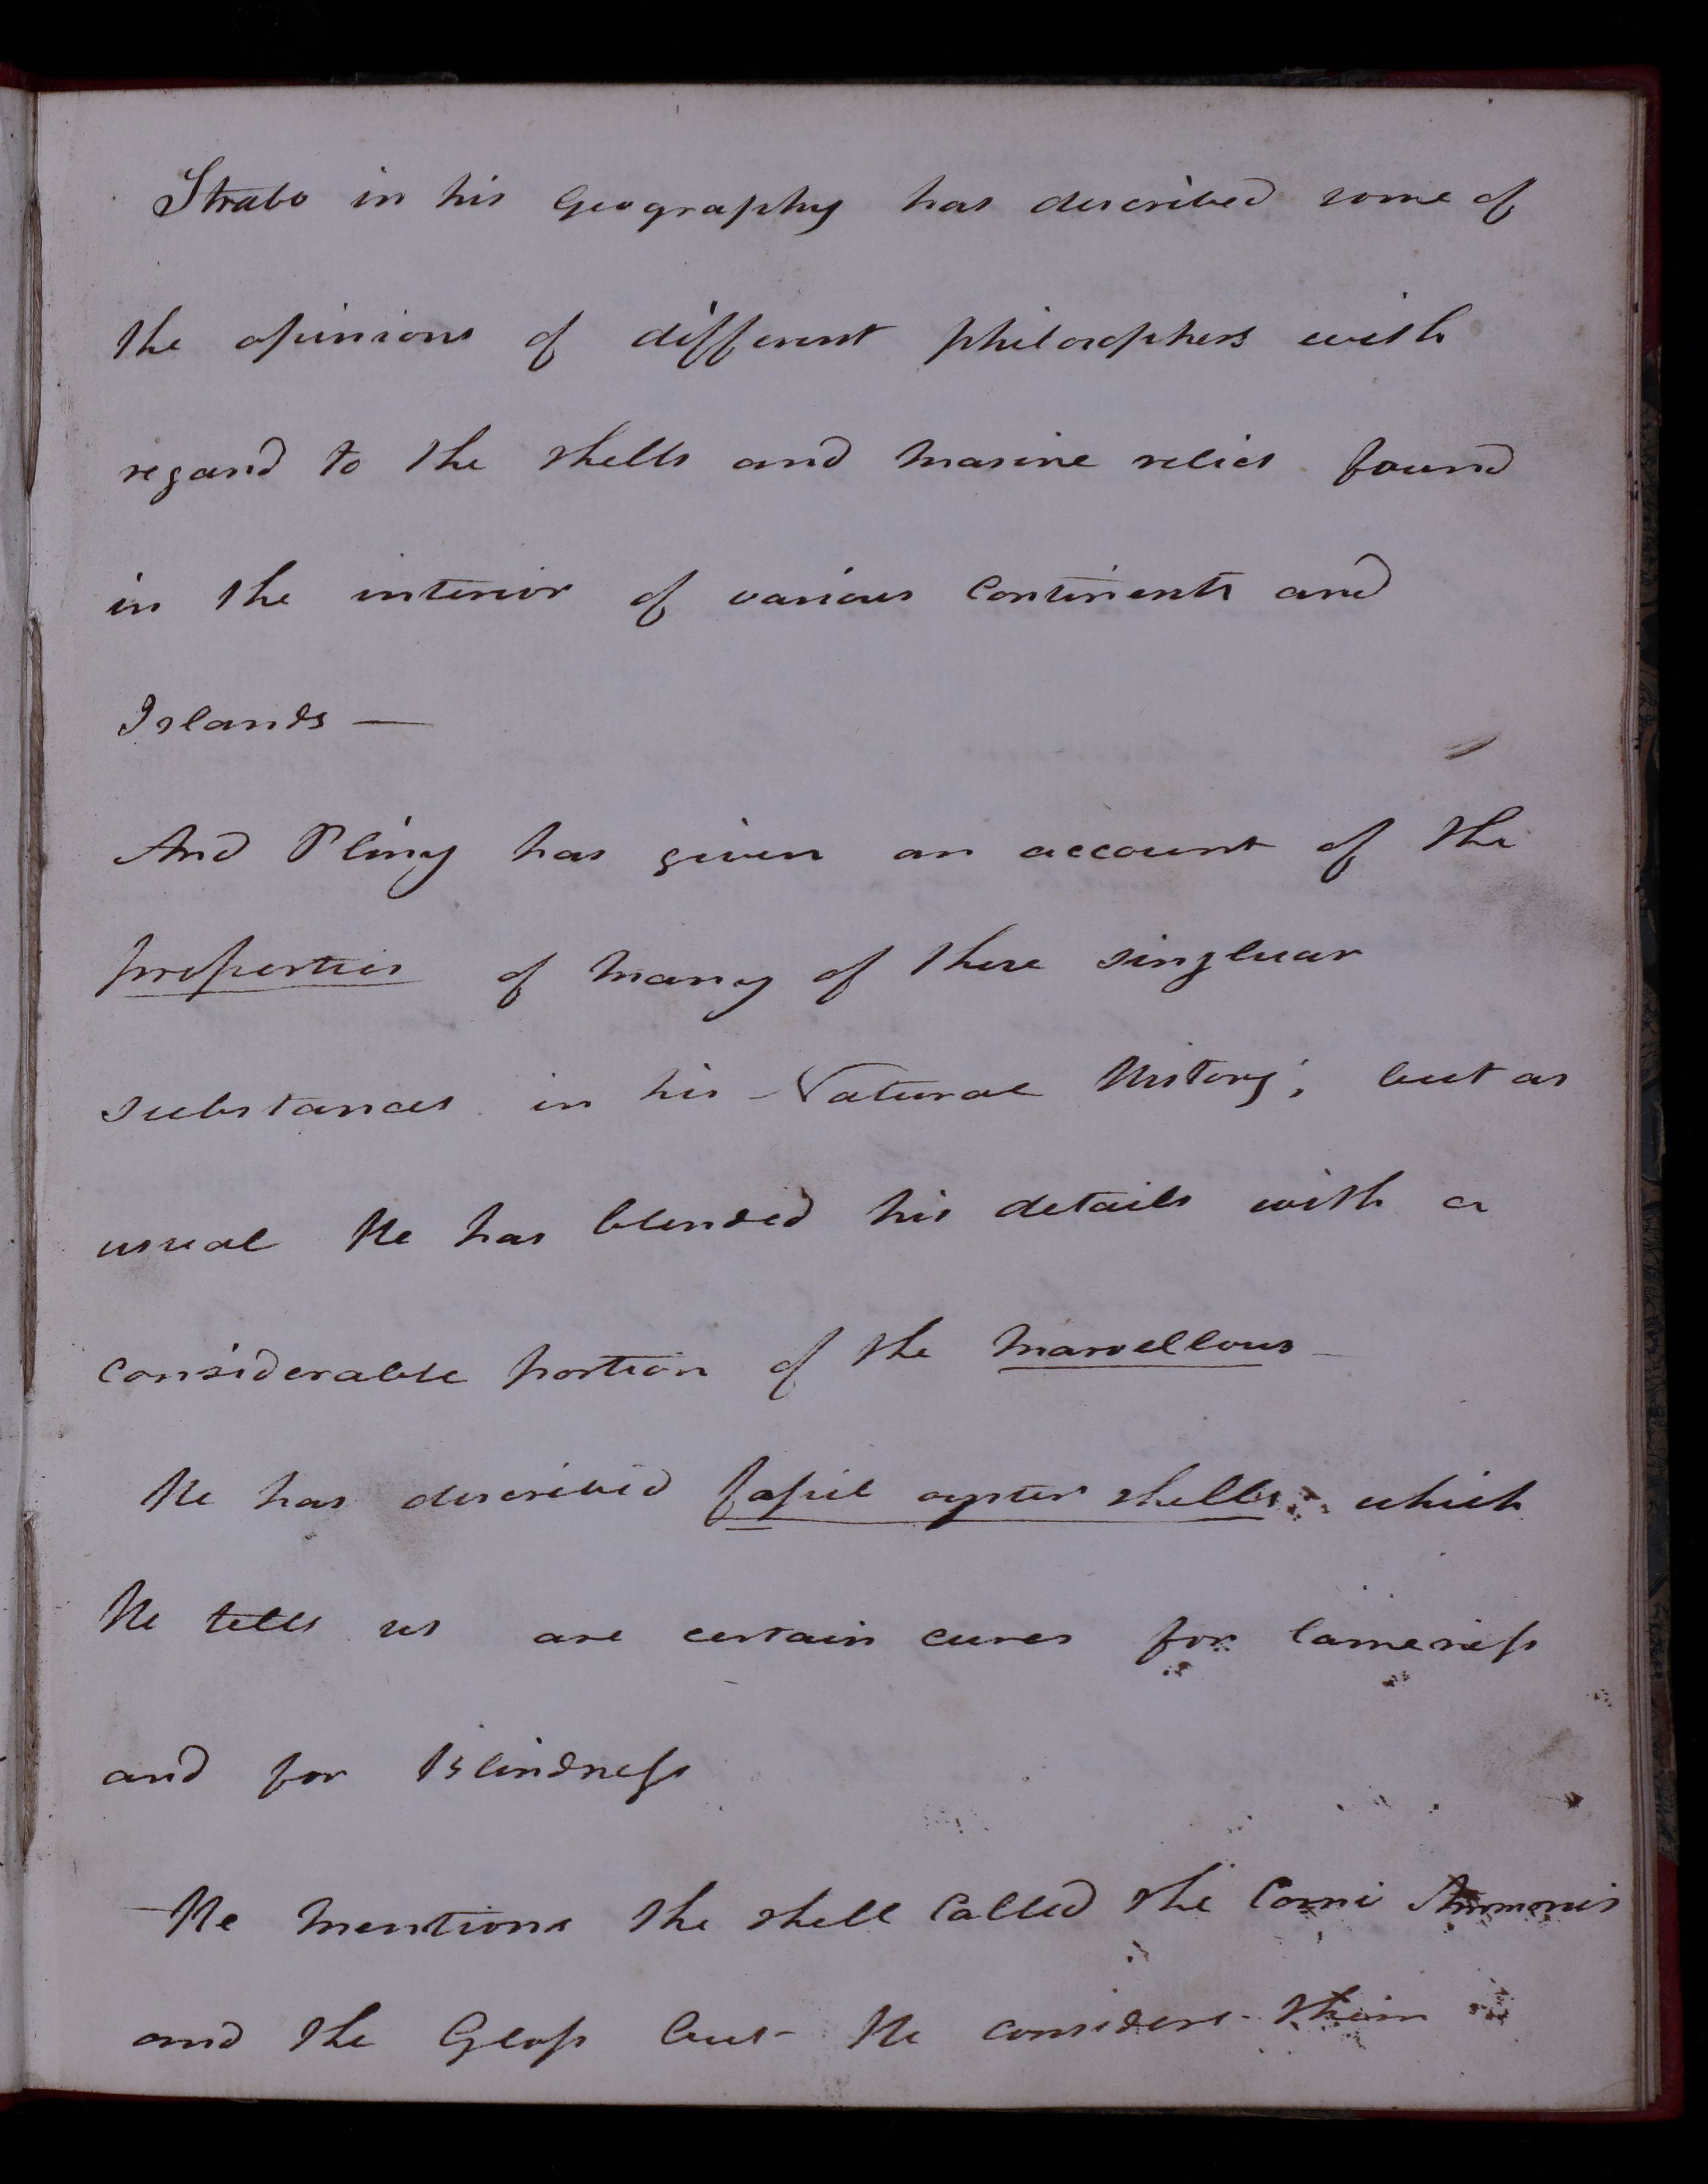 Strabo in his Geography has described some of
the opinions of different philosophers with
regard to the shells and marine relics found
in the interior of various continents and
Islands —
And Pliny has given an account of the
properties of many of these singluar
substances in his Natural History; but as
usual He has blended his details with a
considerable portion of the marvellous —
He has described fossil oyster shells; which
He tells us are certain cures for lameness
and for Blindness
— He mentions the shell called the Cornu Ammonis
and the Gloss but He considers them